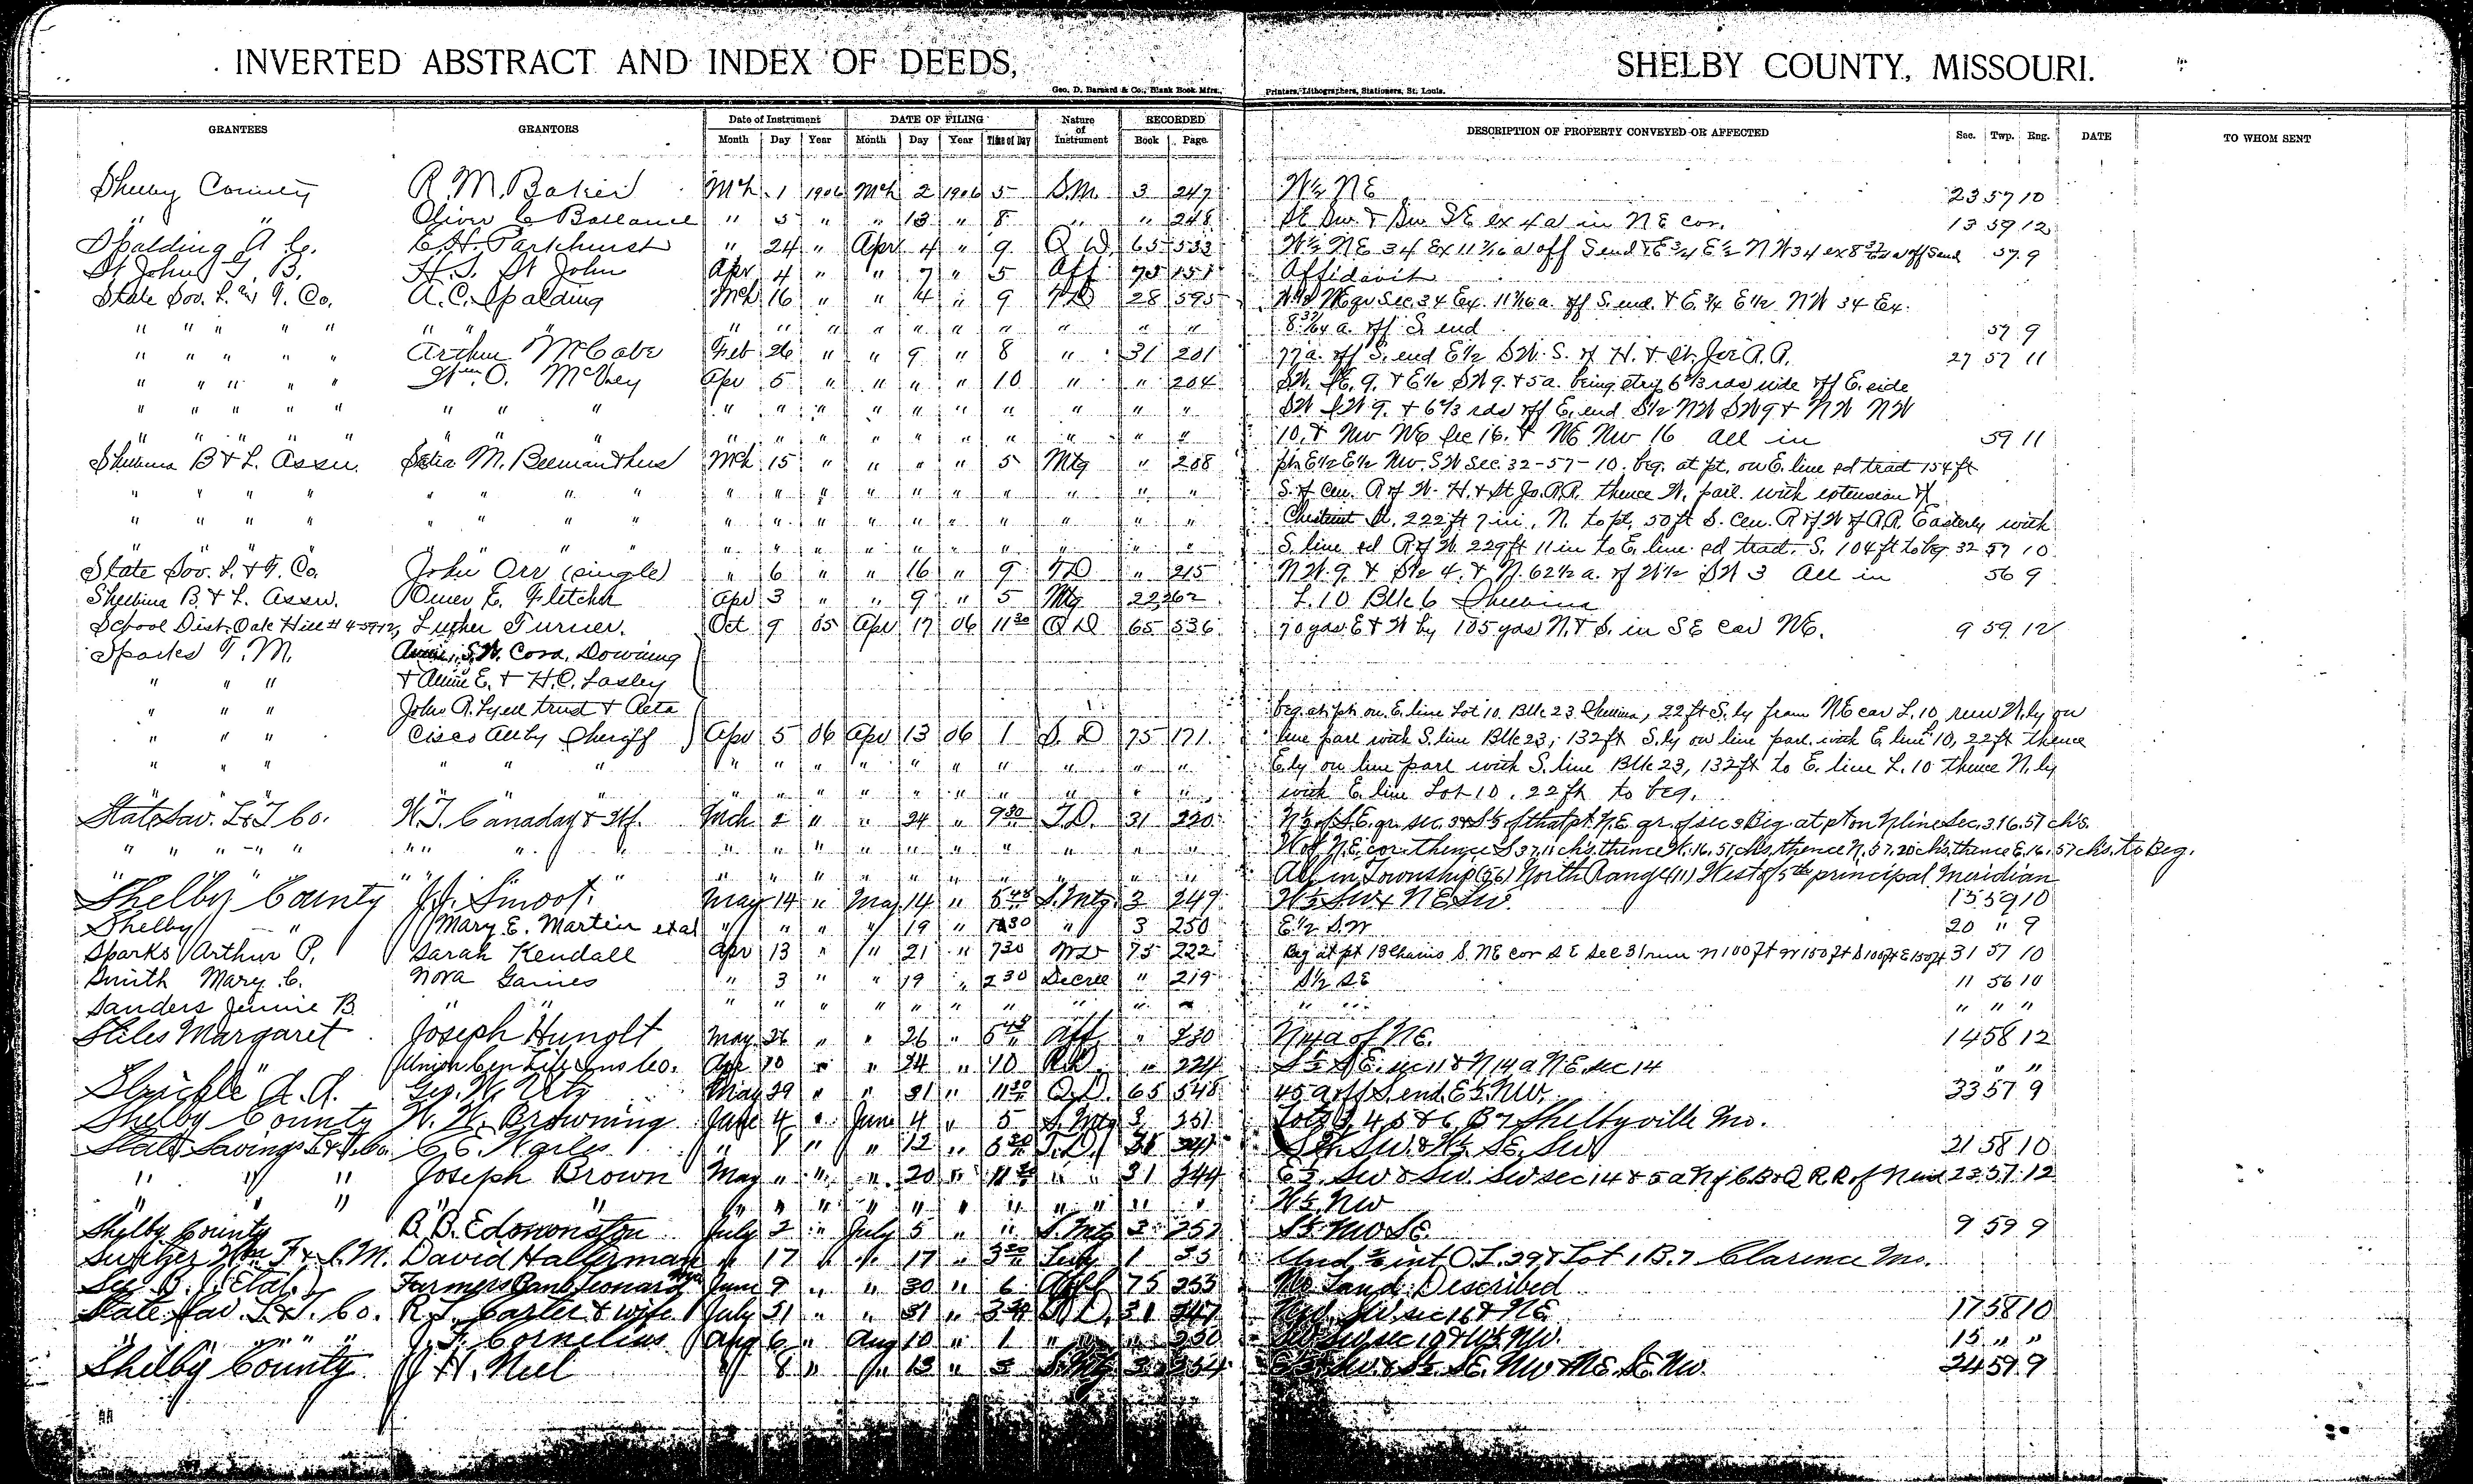 INVERTED ABSTRACT AND INDEX OF DEEDS, SHELBY COUNTY, MISSOURI.
Geo. D. Barnard & Co., Blank Book Mfrs., Printers, Lithographers, Stationers, St. Louis.
GRANTEES GRANTORS Date of Instrument DATE OF FILING Nature of Instrument RECORDED DESCRIPTION OF PROPERTY CONVEYED OR AFFECTED Sec. Twp. Rng. DATE TO WHOM SENT
Month Day Year Month Day Year Time of Day Book Page
Shelby County R. M. Baker Mch 1 1906 Mch 2 1906 5 S.M. 3 247 W½ NE 23 57 10
" " Oliver C Ballance " 5 " " 13 " 8 " " 248 SE Sw. & Sw SE ex 4a in NE cor. 13 59 12
Spalding A C. E.H. Parkhurst " 24 " Apr 4 " 9 Q D 65 533 W½ NE 34 Ex 11 7/16 a off S end & E¾ E½ NW 34 ex off S end 57 9
St John G. B. H. S. St John Apr 4 " " 7 " 5 Aff 75 151 Affidavit
State Sav. L. & T. Co. A. C. Spalding Mch 16 " " 4 " 9 TD 28 595 W½ NE qr Sec. 34 Ex. 11 7/16 a. off S. end. & E. ¾ E½ NW 34 Ex.
" " " " " " " " " " " " " " " " " " 8 37/64 a. off S. end 57 9
" " " " " Arthur McCabe Feb 26 " " 9 " 8 " 31 201 77a. off S. end E½ SW. S. of H. & St. Joe R.R. 27 57 11
" " " " " Wm. O. McVey Apr 5 " " " " 10 " " 204 SW. SE. 9. & E½ SW 9. & 5a. being strip 6⅔ rds wide off E. side
" " " " " " " " " " " " " " " " " " SW SW 9. & 6⅔ rds off E. end S½ NW SW 9 & NW NW
" " " " " " " " " " " " " " " " " " 10. & Nw NE Sec 16. & NE Nw 16 all in 59 11
Shelbina B & L. Assn. M. Beeman & hus Mch 15 " " " " 5 Mtg " 208 pt. E½ E½ Nw. SW Sec. 32-57-10. beg. at pt. on E. line sd tract 154 ft
" " " " " " " " " " " " " " " " " " S. of cen. R of W. H. & St Jo. R.R. thence W. parl. with extension of
" " " " " " " " " " " " " " " " " " Chestnut St. 222 ft 7 in, N. to pt. 50 ft S. cen. R of W of R.R. Easterly with
" " " " " " " " " " " " " " " " " " S. line sd R of W. 229 ft 11 in to E. line sd tract. S. 104 ft to beg. 32 57 10
State Sav. L. & T. Co. John Orr (single) " 6 " " 16 " 9 TD " 215 NW. 9. & S½ 4. & N. 62½ a. of W½ SW 3 All in 56 9
Shelbina B. & L. Assn. Omer E. Fletcher Apr 3 " " 9 " 5 Mtg 22 262 L. 10 Blk 6 Shelbina
School Dist. Oak Hill # 4-59-12, Luther Turner. Oct 9 05 Apr 17 06 11 30 Q D 65 536 70 yds E & W by 105 yds N. & S. in SE cor NE. 9 59 12
Sparks T. M. S.W. Cora. Downing
" " " & Allie E. & H.C. Lasley
" " " John R. Lyell trust & beg. at pt. on E. line Lot 10. Blk 23 Shelbina, 22 ft S.ly from NE cor L. 10, run W.ly on
" " " Cisco Sheriff Apr 5 06 Apr 13 06 1 S. D 75 171 line parl with S. line Blk 23, 132 ft S.ly on line parl. with E. line 10, 22 ft thence
" " " " " " " " " " " " " " " " E.ly on line parl with S. line Blk 23, 132 ft to E. line L. 10 thence N.ly
" " " " " " " " " " " " " " " " with E. line Lot 10. 22 ft to beg.
State Sav. L & T Co. W. T. Canaday & Wf. Mch 2 " " 24 " 9 30 T.D. 31 220 N½ of S.E. qr. sec. 3 & S½ of that pt. N.E. qr. of sec 3 Beg. at pt on N line Sec. 3 16.57 chs.
" " " " " " " " " " " " " " " " W of N.E. cor. thence S 37.11 chs. thence W. 16.57 chs. thence N. 37.20 chs. thence E. 16.57 chs. to Beg.
" " " " " " " " " " " " " " " " All in Township (56) North Range (11) West of 5th principal Meridian
Shelby County J. J. Smoot. May 14 " May 14 " 5 45 S. Mtg. 3 249 W½ SW & NE SW. 15 59 10
Shelby " Mary E. Martin et al " " " " 19 " " 3 250 E½ SW 20 " 9
Sparks Arthur P. Sarah Kendall Apr 13 " " 21 " 7 30 WD 75 222 Beg at pt 13 Chains S. NE cor SE Sec 31 run N 100 ft W 150 ft S 100 ft E 150 ft 31 57 10
Smith Mary C. Nora Gaines " 3 " " 19 " 2 30 Decree " 219 S½ SE 11 56 10
Sanders Jennie B. " " " " " " " " " " " " " " " " "
Stiles Margaret Joseph Hunolt May 26 " " 26 " 5 45 Aff. " 230 N 14 a of NE. 14 58 12
" " Union Cen Life Ins Co. Apr 10 " " 24 " 10 R.D. " 224 S½ SE. sec 11 & N 14 a NE. sec 14 " "
A. A. Geo. W. Utz May 29 " " 31 " 11 30 Q.D. 65 548 45 a off S. end. E½ NW. 33 57 9
Shelby County W. W. Browning June 4 " June 4 " 5 S. Mtg 3 251 Lots 3, 4, 5 & 6, B 7 Shelbyville Mo.
State Savings L & T. Co. C. E. " " " 12 " T.D. SW. & W½ SE. SW 21 58 10
" " " Joseph Brown May " " " 20 " " " 31 244 E½ SW & SW. SW sec 14 & 5 a N of C.B. & Q R.R. of N end 23 57 12
" " " " " " " " " " " " " " " W½ NW
Shelby County B. B. Edmonston July 2 " July 5 " " S. Mtg 3 252 S½ NW SE. 9 59 9
Switzer Wm F. & C. M. David Hallerman " 17 " " 17 " 1 Und. int O.L. 29 & Lot 1 B. 7 Clarence Mo.
B. (Etal.) Farmers Bank June 9 " " 30 " 6 75 No Land Described
State Sav. L. & T. Co. R. L. Carter & wife July 31 " " 31 " D. 31 247 SW sec 16 & NE 17 58 10
" " " " J. F. Cornelius Aug 6 " Aug 10 " 1 " " 250 SW. SW sec 10 & W½ NW. 15 " "
Shelby County J H. Neel " 8 " " 13 " 3 S. Mtg 3 254 SW. & S½ SE. NW & NE. SE. NW. 24 59 9